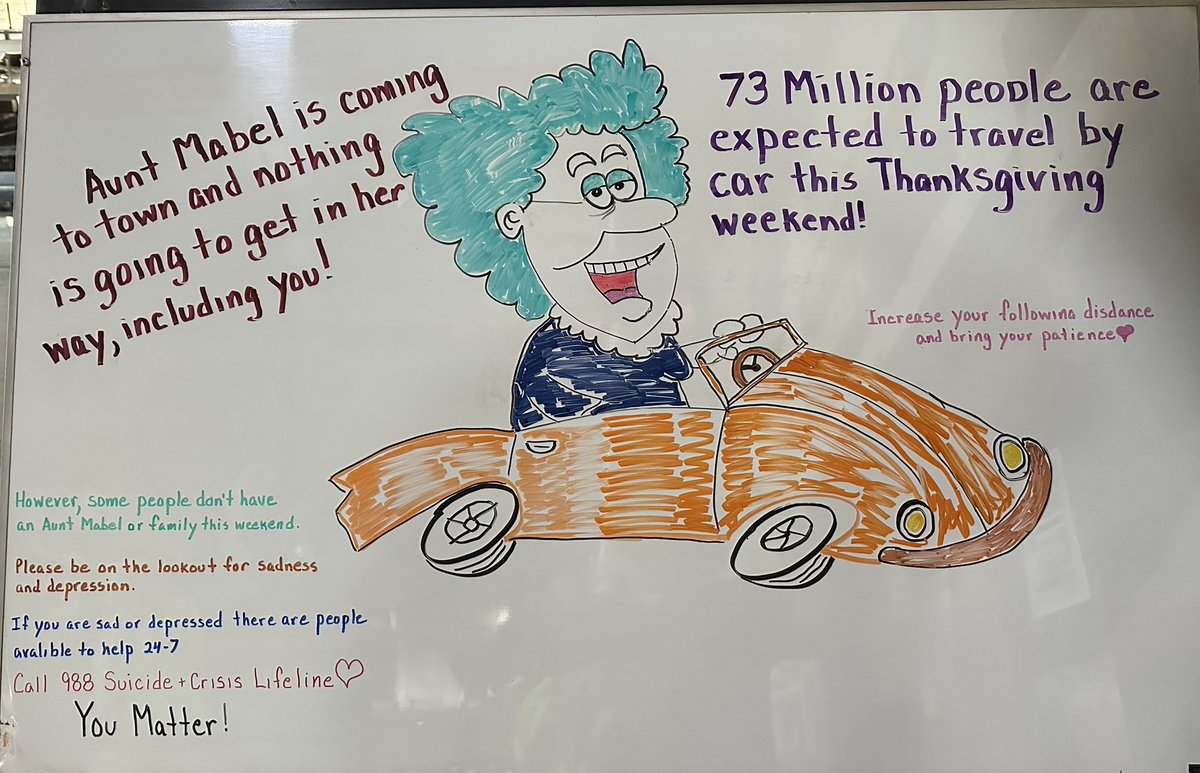 Aunt Mabel is coming
to town and nothing
is going to get in her
way, including you!
73 Million people are
expected to travel by
car this Thanksgiving
weekend!
Increase your following disdance
and bring your patience♥
However, some people don't have
an Aunt Mabel or family this weekend.
Please be on the lookout for sadness
and depression.
If you are sad or depressed there are people
avalible to help 24-7
Call 988 Suicide + Crisis Lifeline♡
You Matter!